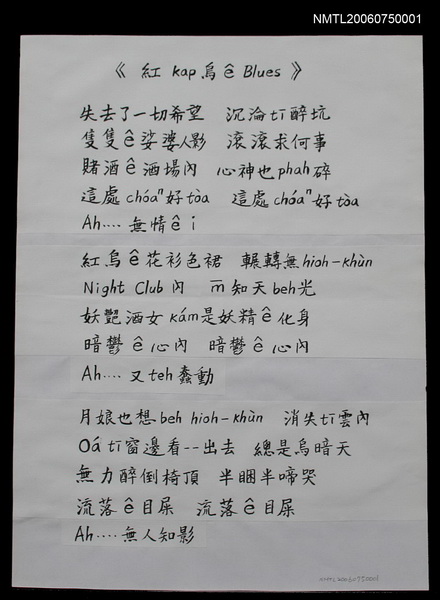 NMTL20060750001
《 紅 kap 烏 ê Blues 》
失去了一切希望 沉淪tī醉坑
隻隻ê娑婆人影 滾滾求何事
賭酒ê酒場內 心神也phah碎
這處chóaⁿ好tòa 這處chóaⁿ好tòa
Ah‥‥無情ê i
紅烏ê花衫色裙 輾轉無hioh-khùn
Night Club內 m̄知天beh光
妖艷酒女kám是妖精ê化身
暗鬱ê心內 暗鬱ê心內
Ah‥‥又teh蠢動
月娘也想beh hioh-khùn 消失tī雲內
Oá tī窗邊看--出去 總是烏暗天
無力醉倒椅頂 半睏半啼哭
流落ê目屎 流落ê目屎
Ah‥‥無人知影
NMTL20060750001